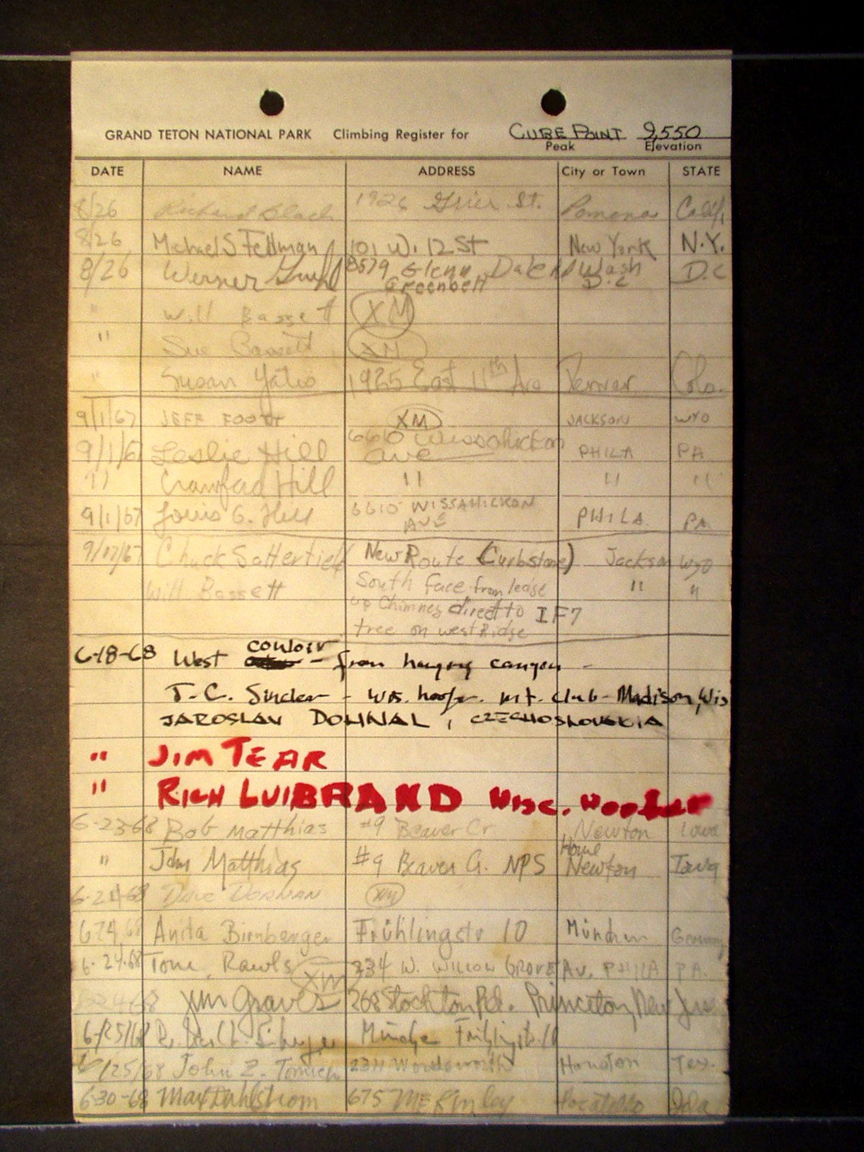 GRAND TETON NATIONAL PARK Climbing Register for CUBE POINT 9,550
Peak Elevation
DATE NAME ADDRESS City or Town STATE
8/26 Richard Black 1926 Grier St. Pomona Calif.
8/26 Michael S Fellman 101 W. 12 St New York N.Y.
8/26 Werner 8579 Glenn Dale Rd Wash D.C
Greenbelt D.C
" Will Bassett XM
" Sue Bassett XM
" Susan Yates 1925 East 11th Ave Denver Colo.
9/1/67 JEFF FOOTT XM JACKSON WYO
9/1/6 Leslie Hill 6610 Wissahickon PHILA PA
ave
" Crawford Hill " " "
9/1/67 Louis G. Hill 6610 WISSAHICKON PHILA. PA
AVE
9/17/67 Chuck Satterfield New Route (Curbstone) Jackson Wyo
Will Bassett South face from ledge " "
up Chimney direct to IF7
tree on west Ridge
6-18-68 West couloir - from hanging canyon -
T.C. Sinclar - Wis. hoofer. mt. club - Madison, Wis
JAROSLAV DOHNAL, CZECHOSLOVAKIA
" JIM TEAR
" RICH LUIBRAND Wisc. Hoofer
6-23-68 Bob Matthias #9 Beaver Cr Newton Iowa
Home
" John Matthias #9 Beaver Cr. NPS Newton Iowa
6-24-68 DAVE DORNAN XM
6-24-68 Anita Birnberger Frühlingstr 10 München Germany
6-24-68 Tom Rawls 334 W. WILLOW GROVE AV. PHILA PA.
XM
6-24-68 Jim Graves 268 Stockton Rd. Princeton New Jers
6/25/68 Frühlingstr 10
6/25/68 John Z. Tomich 2311 Wordsworth Houston Tex.
6-30-68 Max Dahlstrom 675 McKinley Pocatello Ida